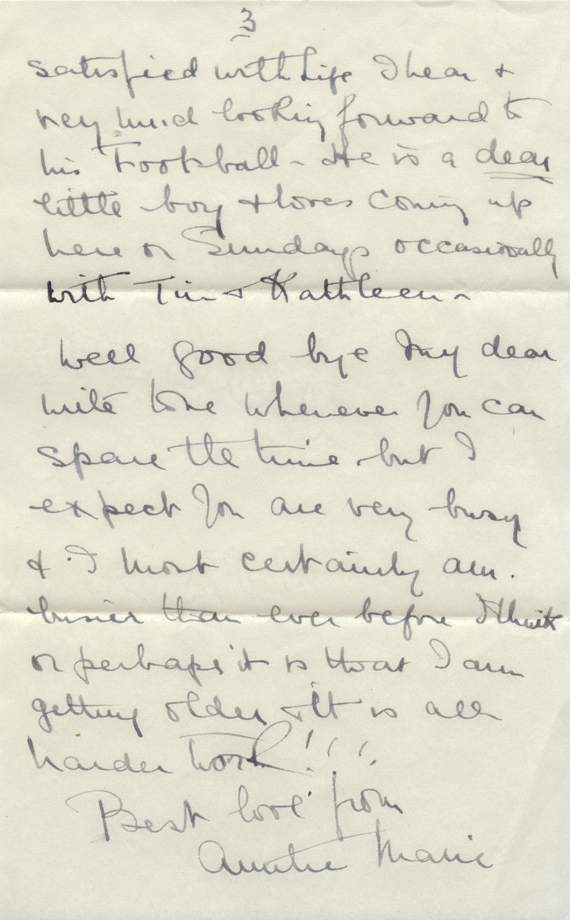 3
satisfied with Life I hear &
very much looking forward to
his Football - He is a dear
little boy & loves coming up
here on Sundays occasionally
with Tim & Kathleen -
Well good bye my dear
write to me whenever you can
spare the time but I
expect you are very busy
& I most certainly am.
busier than ever before I think
or perhaps it is that I am
getting older & it is all
harder work!!!
Best love from
Auntie Marie